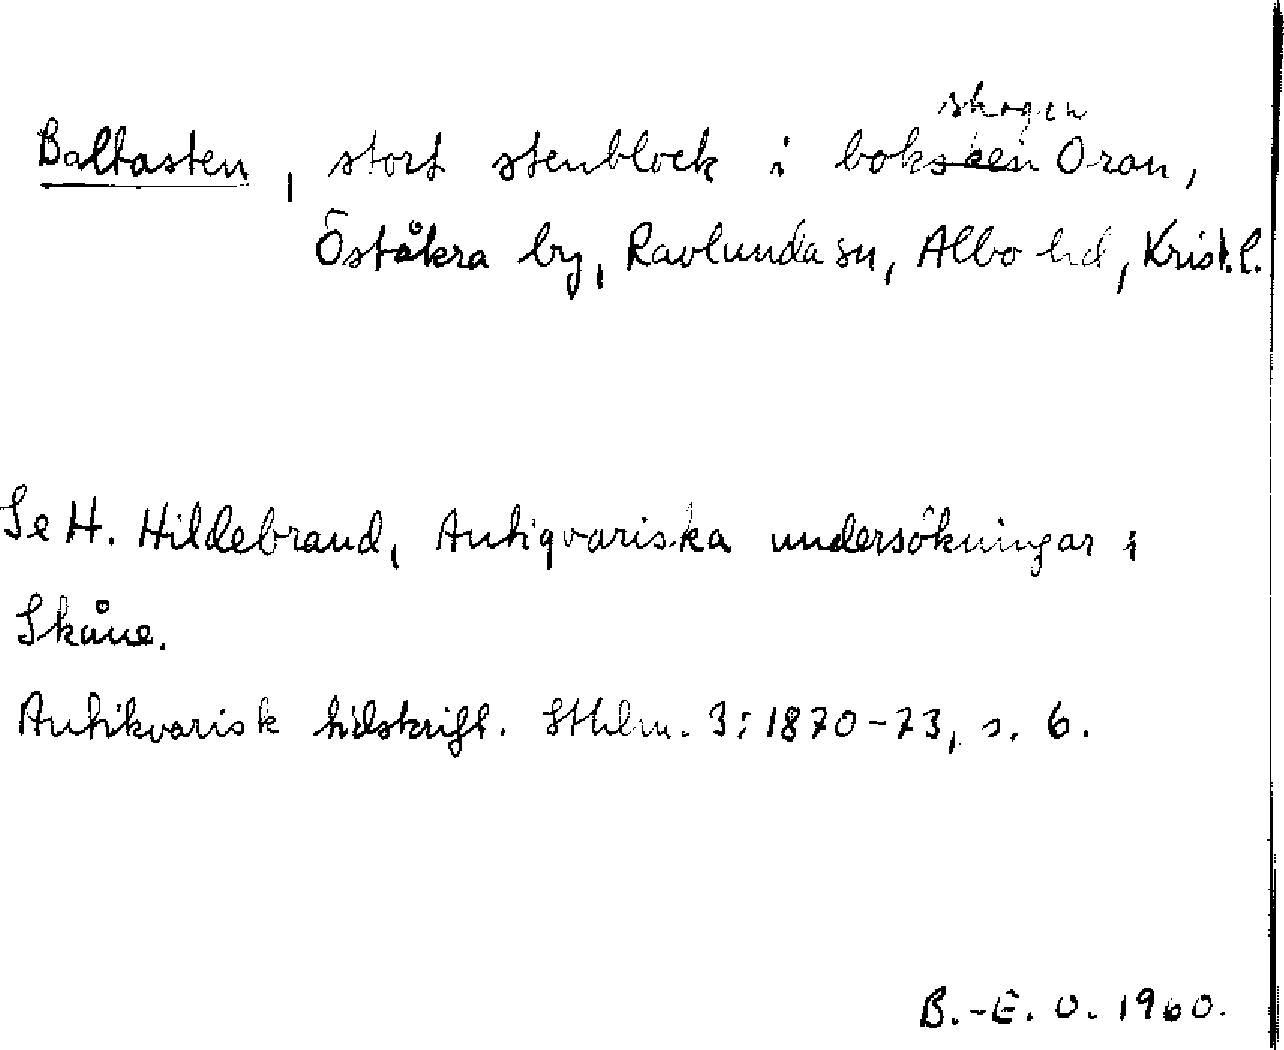 Baltasten, stort stenblock i bokskogen Oran,
Öståkra by, Ravlunda sn, Albo hd, Krist.l.
Se H. Hildebrand, Antiqvariska undersökningar i
Skåne.
Antikvarisk tidskrift. Sthlm. 3: 1870-73, s. 6.
B.-E. O. 1960.